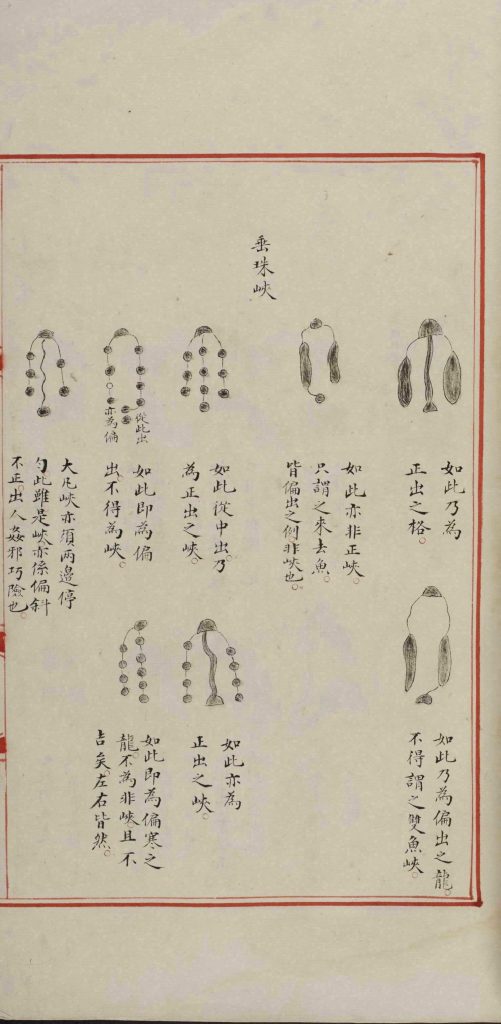 如此乃為
正出之格。
如此乃為偏出之龍。
不得謂之雙魚峽。
如此亦非正峽。
只謂之來去魚。
皆偏出之例非峽也。
垂珠峽
如此從中出。乃
為正出之峽。
如此亦為
正出之峽。
從此出
亦為偏
如此即為偏
出。不得為峽。
如此即為偏寒之
龍。不為非峽且不
吉矣。左右皆然。
大凡峽亦須兩邊停
勻此雖是峽亦係偏斜
不正。出人姦邪巧險也。